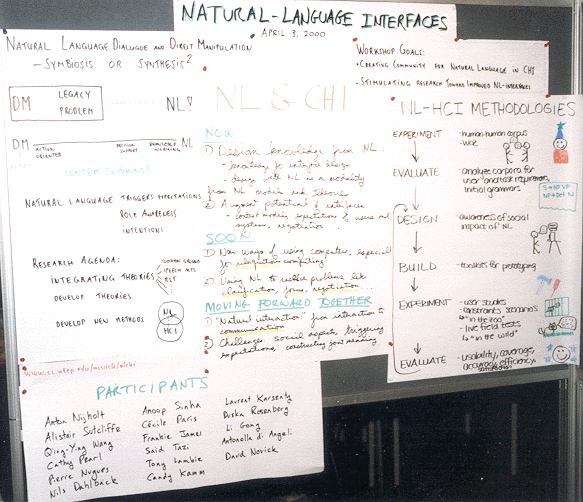 NATURAL-LANGUAGE INTERFACES
APRIL 3, 2000
NATURAL LANGUAGE DIALOGUE AND DIRECT MANIPULATION
- SYMBIOSIS OR SYNTHESIS?
DM LEGACY PROBLEM NL!
DM NL
ACTION ORIENTED
DECISION SUPPORT
KNOWLEDGE WORKING
NATURAL LANGUAGE TRIGGERS EXPECTATIONS
ROLE AWARENESS
INTENTIONS
RESEARCH AGENDA:
INTEGRATING THEORIES
SPEECH ACTS
RST
DEVELOP THEORIES
DEVELOP NEW METHODS
NL
HCI
NL & CHI
NOW
1) Design knowledge from NL:
- heuristics for interface design
- design with NL as a modality
from NL models and theories
2) Augment potential of interfaces
- context models, expectations of users and
system, negotiation
SOON
1) New ways of using computers, especially
for navigation computing
2) Using NL to resolve problems like
clarification, forms, negotiation...
MOVING FORWARD TOGETHER
1) "Natural interaction" from interaction to
communication
2) Challenges: social aspects, triggering
expectations, constructing joint meaning
WORKSHOP GOALS:
• CREATING COMMUNITY FOR NATURAL LANGUAGE IN CHI
• STIMULATING RESEARCH TOWARD IMPROVED NL-INTERFACES
NL-HCI METHODOLOGIES
EXPERIMENT - human:human corpus
- WOZ
EVALUATE - analyze corpora for
user and task requirements,
initial grammars
S → NP VP
NP → Det N
DESIGN - awareness of social
impact of NL
BUILD - toolkits for prototyping
EXPERIMENT - user studies
- constraints/scenarios
↳ "in the zoo"
- live field tests
↳ "in the wild"
EVALUATE - usability, coverage,
accuracy, efficiency,
satisfaction
PARTICIPANTS
Anton Nijholt
Alistair Sutcliffe
Qing-Ying Wang
Cathy Pearl
Pierre Nugues
Nils Dahlbäck
Anoop Sinha
Cécile Paris
Frankie James
Said Tazi
Tony Lambie
Candy Kamm
Laurent Karsenty
Duska Rosenberg
Li Gong
Antonella di Angeli
David Novick